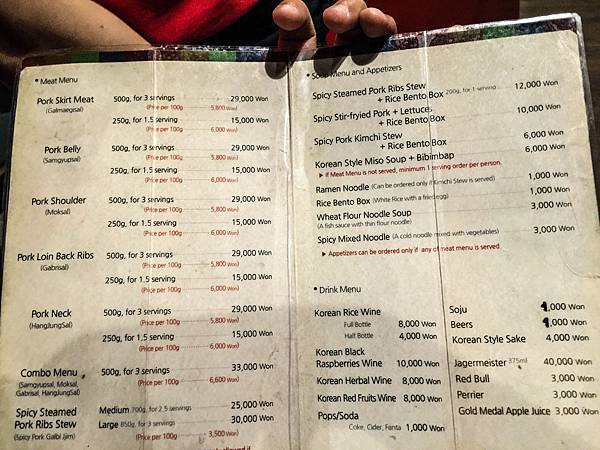 • Meat Menu
Pork Skirt Meat 500g, for 3 servings 29,000 Won
(Galmaegisal) (Price per 100g 5,800 Won)
250g, for 1.5 serving 15,000 Won
(Price per 100g 6,000 Won)
Pork Belly 500g, for 3 servings 29,000 Won
(Samgyupsal) (Price per 100g 5,800 Won)
250g, for 1.5 serving 15,000 Won
(Price per 100g 6,000 Won)
Pork Shoulder 500g, for 3 servings 29,000 Won
(Moksal) (Price per 100g 5,800 Won)
250g, for 1.5 serving 15,000 Won
(Price per 100g 6,000 Won)
Pork Loin Back Ribs 500g, for 3 servings 29,000 Won
(Gabrisal) (Price per 100g 5,800 Won)
250g, for 1.5 serving 15,000 Won
(Price per 100g 6,000 Won)
Pork Neck 500g, for 3 servings 29,000 Won
(HangJungSal) (Price per 100g 5,800 Won)
250g, for 1.5 serving 15,000 Won
(Price per 100g 6,000 Won)
Combo Menu 500g, for 3 servings 33,000 Won
(Samgyupsal, Moksal, (Price per 100g 6,600 Won)
Gabrisal, HangJungSal)
Spicy Steamed Medium 700g, for 2.5 servings 25,000 Won
Pork Ribs Stew Large 850g, for 3 servings 30,000 Won
(Spicy Pork Galbi Jjim) (Price per 100g 3,500 Won)
• Soup Menu and Appetizers
Spicy Steamed Pork Ribs Stew 200g, for 1 serving 12,000 Won
+ Rice Bento Box
Spicy Stir-fryied Pork + Lettuces 10,000 Won
+ Rice Bento Box
Spicy Pork Kimchi Stew 6,000 Won
+ Rice Bento Box
Korean Style Miso Soup + Bibimbap 6,000 Won
▶ If Meat Menu is not served, minimum 1 serving order per person.
Ramen Noodle (Can be ordered only if Kimchi Stew is served) 1,000 Won
Rice Bento Box (White Rice with a fried egg) 1,000 Won
Wheat Flour Noodle Soup 3,000 Won
(A fish sauce with thin flour noodle)
Spicy Mixed Noodle (A cold noodle mixed with vegetables) 3,000 Won
▶ Appetizers can be ordered only if any of meat menu is served.
• Drink Menu
Korean Rice Wine
Full Bottle 8,000 Won
Half Bottle 4,000 Won
Korean Black
Raspberries Wine 10,000 Won
Korean Herbal Wine 8,000 Won
Korean Red Fruits Wine 8,000 Won
Pops/Soda
Coke, Cider, Fanta 1,000 Won
Soju ,000 Won
Beers ,000 Won
Korean Style Sake 4,000 Won
Jagermeister 375ml 40,000 Won
Red Bull 3,000 Won
Perrier 3,000 Won
Gold Medal Apple Juice 3,000 Won